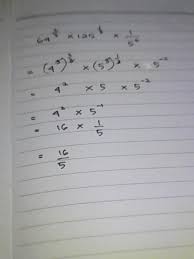 64^(2/3) × 125^(1/3) × 1/5²
= (4³)^(2/3) × (5³)^(1/3) × 5⁻²
= 4² × 5 × 5⁻²
= 4² × 5⁻¹
= 16 × 1/5
= 16/5